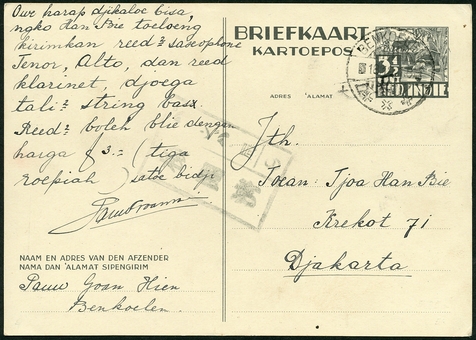 Ouw harap djikaloe bisa,
ngko dan Bie toeloeng
kirimkan reed² saxophone
Tenor, Alto, dan reed
klarinet, djoega
tali² string bas
Reed² boleh blie dengan
harga f 3.= (tiga
roepiah) satoe bidji
BRIEFKAART
KARTOEPOS
ADRES ALAMAT
BENKOELEN
3½
Jth.
Toean: Tjoa Han Bie
Krekot 71
Djakarta
NAAM EN ADRES VAN DEN AFZENDER
NAMA DAN 'ALAMAT SIPENGIRIM
Pauw Goan Hien
Benkoelen